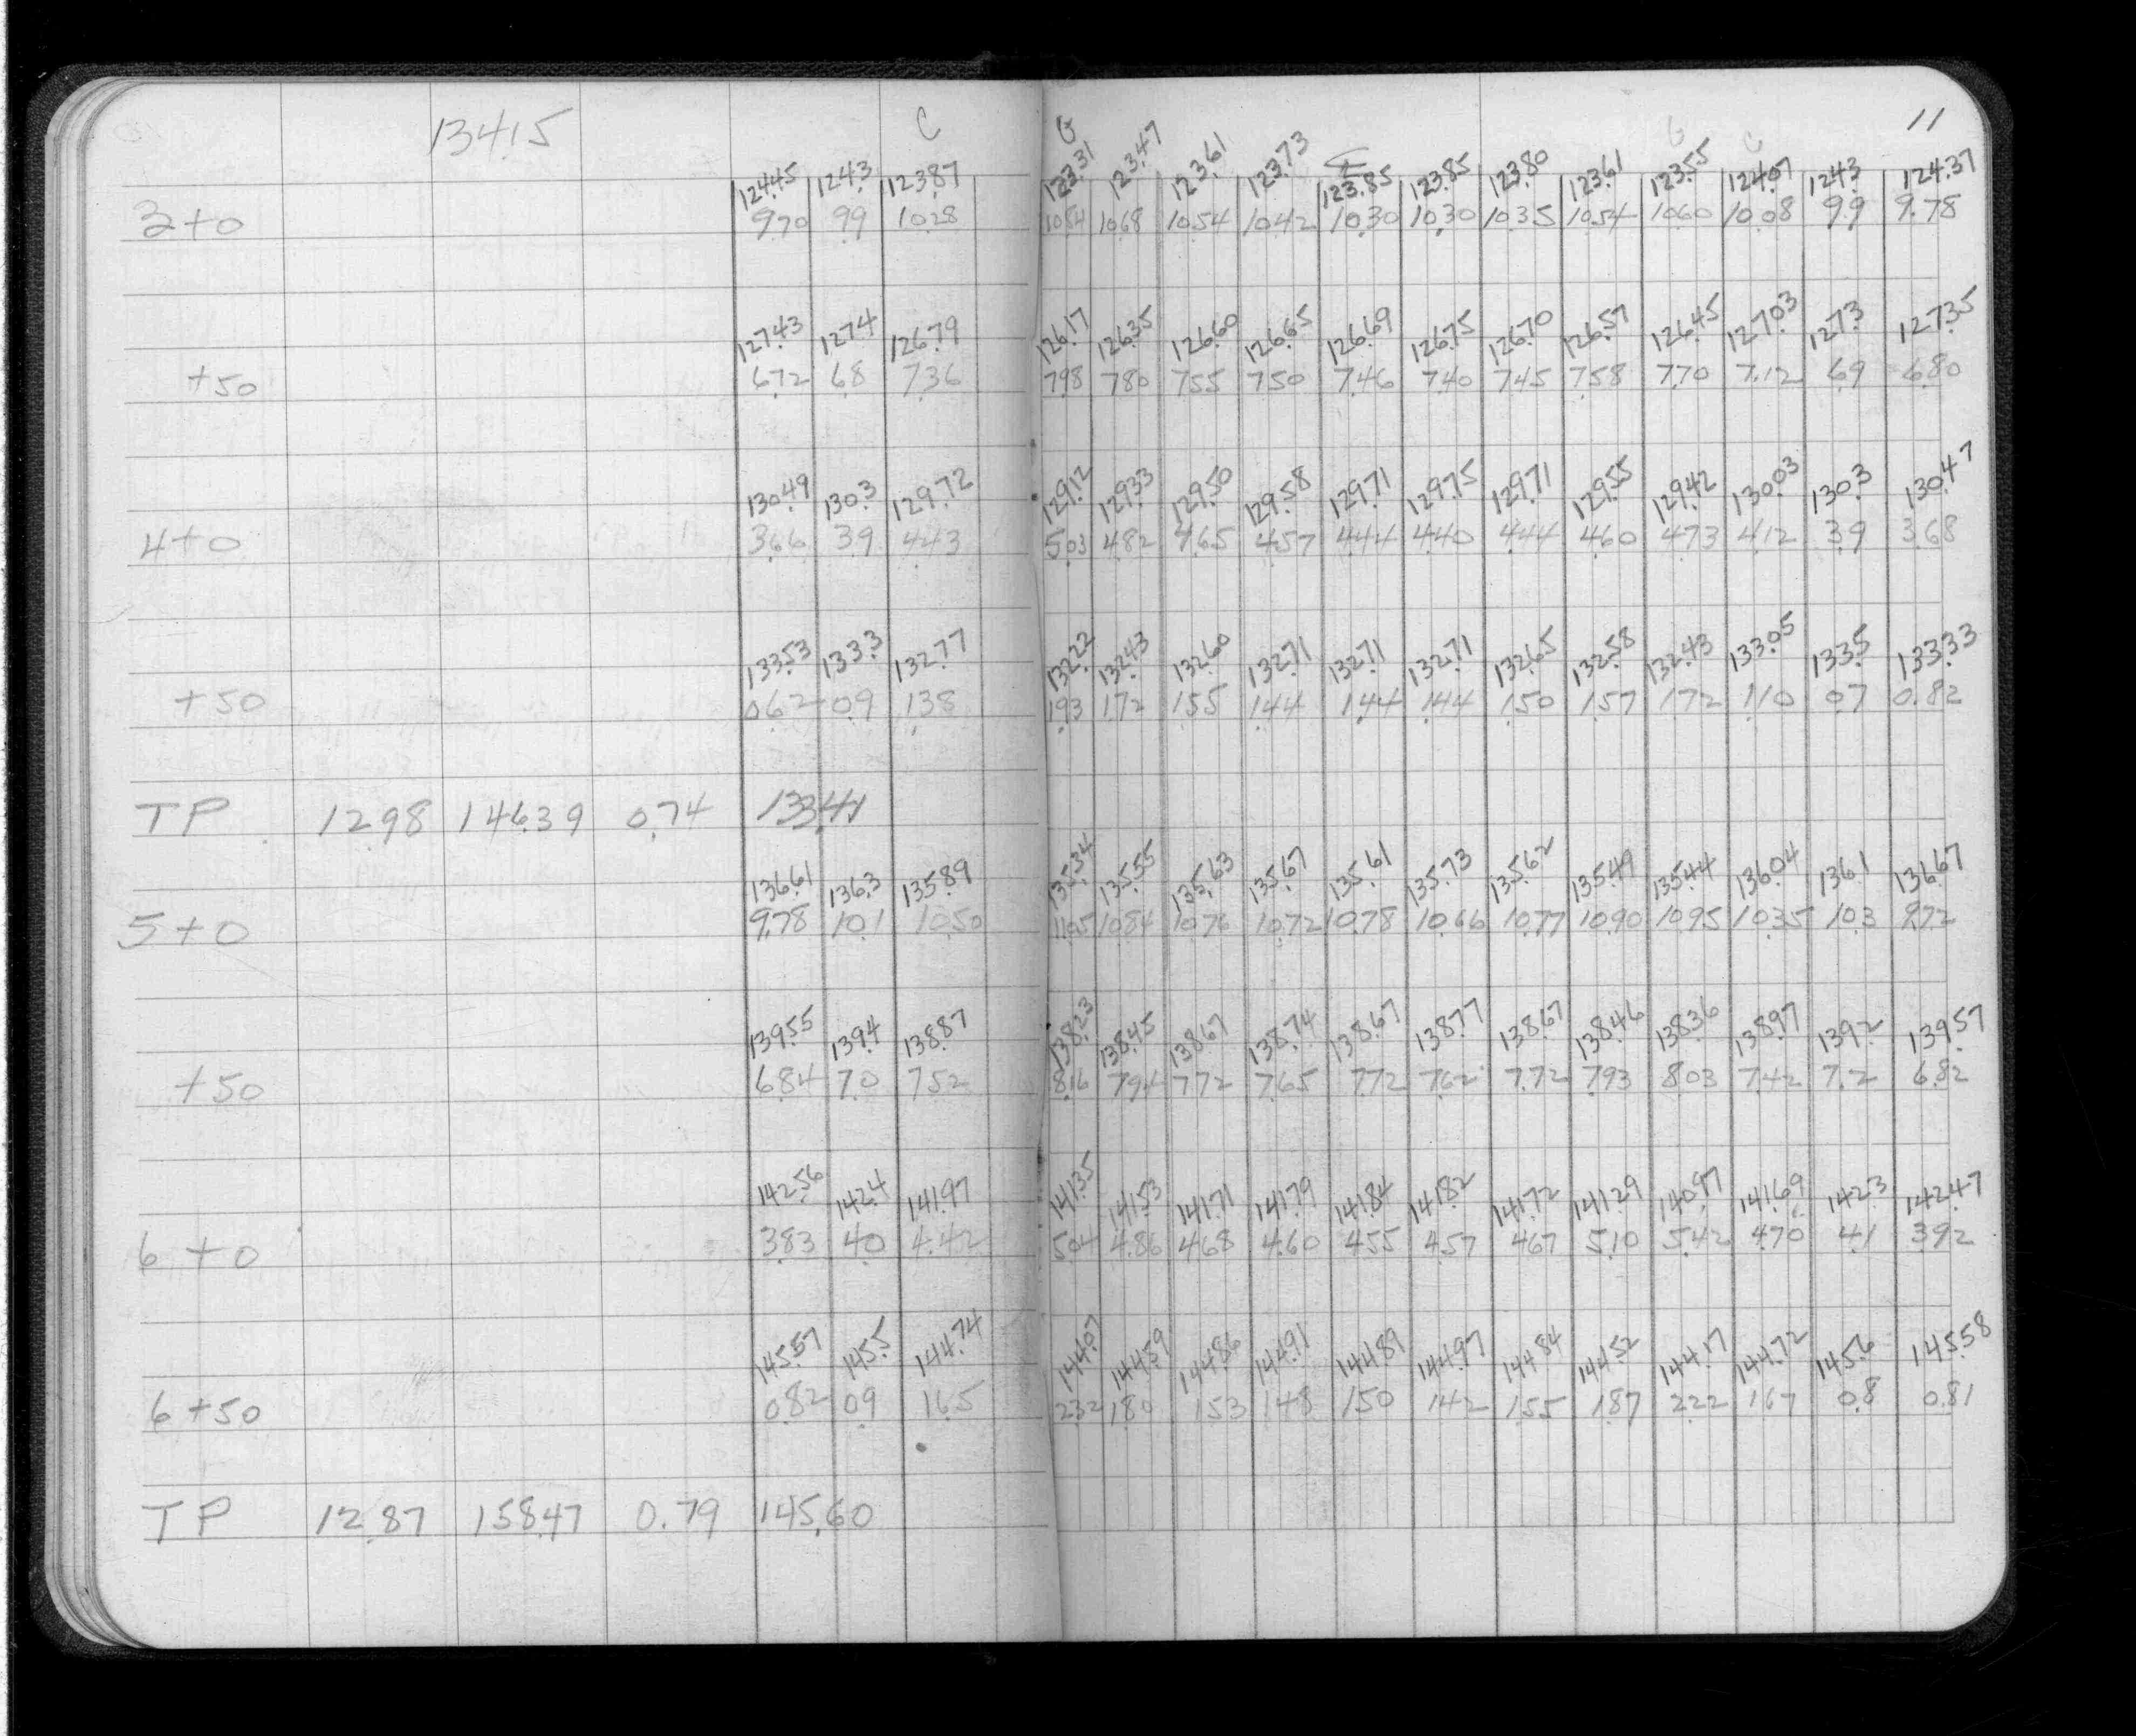 134.15 C G ⅊ G C 11
124.45 124.3 123.87 123.31 123.47 123.61 123.73 123.85 123.85 123.80 123.61 123.55 124.07 124.3 124.37
3+0 9.70 9.9 10.28 10.84 10.68 10.54 10.42 10.30 10.30 10.35 10.54 10.60 10.08 9.9 9.78
127.43 127.4 126.79 126.17 126.35 126.60 126.65 126.69 126.75 126.70 126.57 126.45 127.03 127.3 127.35
+50 6.72 6.8 7.36 7.98 7.80 7.55 7.50 7.46 7.40 7.45 7.58 7.70 7.12 6.9 6.80
130.49 130.3 129.72 129.12 129.33 129.50 129.58 129.71 129.75 129.71 129.55 129.42 130.03 130.3 130.47
4+0 3.66 3.9 4.43 5.03 4.82 4.65 4.57 4.44 4.40 4.44 4.60 4.73 4.12 3.9 3.68
133.53 133.3 132.77 132.22 132.43 132.60 132.71 132.71 132.71 132.65 132.58 132.43 133.05 133.5 133.33
+50 0.62 0.9 1.38 1.93 1.72 1.55 1.44 1.44 1.44 1.50 1.57 1.72 1.10 0.7 0.82
TP 12.98 146.39 0.74 133.41
136.61 136.3 135.89 135.34 135.55 135.63 135.67 135.61 135.73 135.62 135.49 135.44 136.04 136.1 136.67
5+0 9.78 10.1 10.50 11.05 10.84 10.76 10.72 10.78 10.66 10.77 10.90 10.95 10.35 10.3 9.72
139.55 139.4 138.87 138.23 138.45 138.67 138.74 138.67 138.77 138.67 138.46 138.36 138.97 139.2 139.57
+50 6.84 7.0 7.52 8.16 7.94 7.72 7.65 7.72 7.62 7.72 7.93 8.03 7.42 7.2 6.82
142.56 142.4 141.97 141.35 141.53 141.71 141.79 141.84 141.82 141.72 141.29 140.97 141.69 142.3 142.47
6+0 3.83 4.0 4.42 5.04 4.86 4.68 4.60 4.55 4.57 4.67 5.10 5.42 4.70 4.1 3.92
145.57 145.5 144.74 144.07 144.59 144.86 144.91 144.89 144.97 144.84 144.52 144.17 144.72 145.6 145.58
6+50 0.82 0.9 1.65 2.32 1.80 1.53 1.48 1.50 1.42 1.55 1.87 2.22 1.67 0.8 0.81
TP 12.87 158.47 0.79 145.60